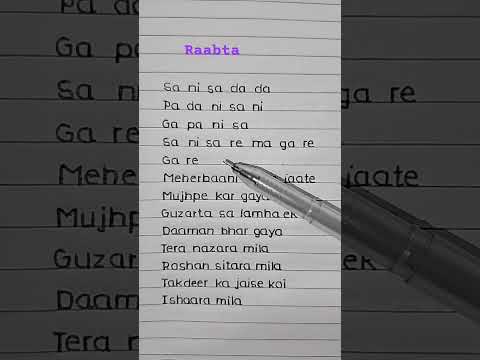 Raabta
Sa ni sa da da
Pa da ni sa ni
Ga pa ni sa
Sa ni sa re ma ga re
Ga re
Meherbaani jaate
Mujhpe kar gaya
Guzarta sa lamha ek
Daaman bhar gaya
Tera nazara mila
Roshan sitara mila
Takdeer ka jaise koi
Ishaara mila